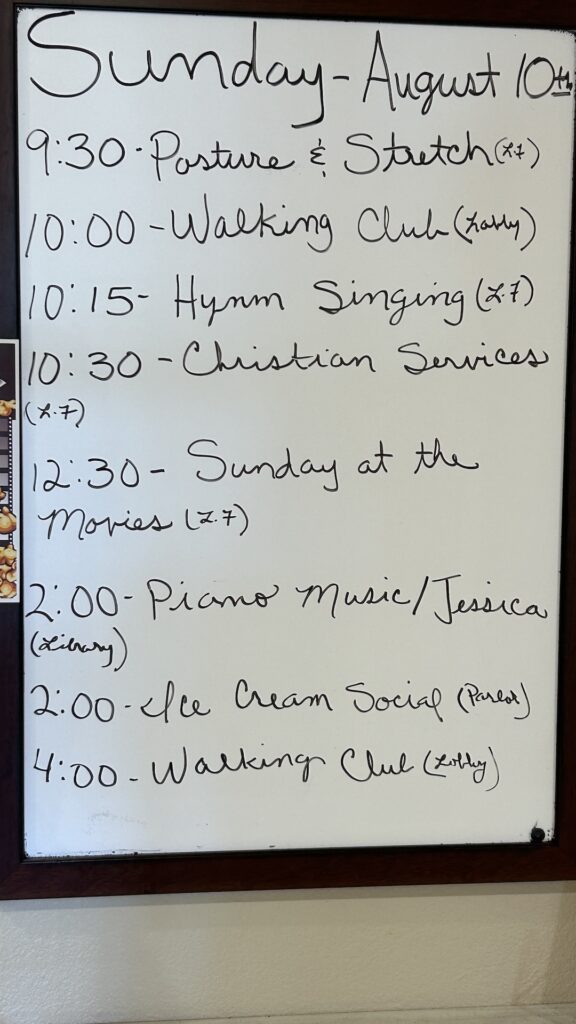 Sunday - August 10th
9:30 - Posture & Stretch (L.7)
10:00 - Walking Club (Lobby)
10:15 - Hynm Singing (L.7)
10:30 - Christian Services
(L.7)
12:30 - Sunday at the
Movies (L.7)
2:00 - Piano Music/Jessica
(Library)
2:00 - Ice Cream Social (Parlor)
4:00 - Walking Club (Lobby)